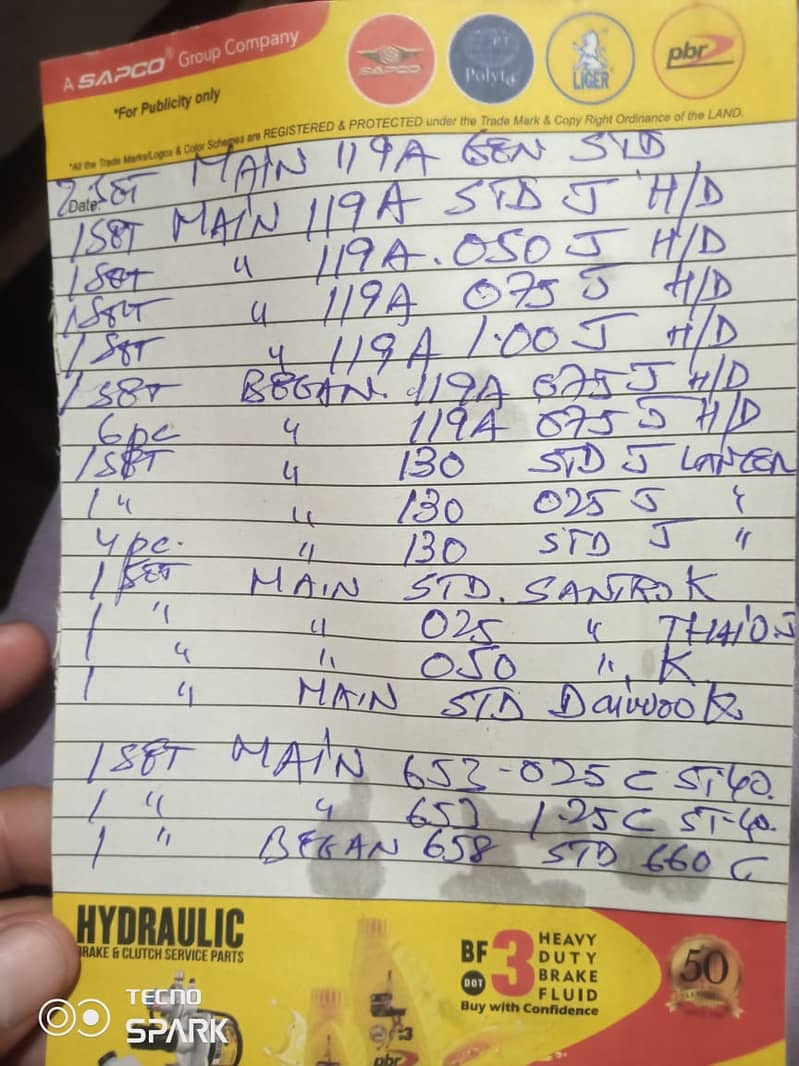 A SAPCO® Group Company
SAPCO
Polyta
LIGER
pbr
*For Publicity only
*All the Trade Marks/Logos & Color Schemes are REGISTERED & PROTECTED under the Trade Mark & Copy Right Ordinance of the LAND.
Date:
2 SET MAIN 119A GEN STD
1 SET MAIN 119A STD J H/D
1 SET " 119A .050 J H/D
1 SET " 119A 075 J H/D
1 SET " 119A 1.00 J H/D
1 SET BEGAN 119A 075 J H/D
6 pc " 119A 075 J H/D
1 SET " 130 STD J LANCER
1 " " 130 025 J "
4 pc. " 130 STD J "
1 SET MAIN STD. SANTRO K
1 " " 025 " THAI
1 " " 050 " K
1 " MAIN STD Daiwoo K
1 SET MAIN 653-025 C ST-40.
1 " " 653 1.25 C ST-40.
1 " BEGAN 658 STD 660 C
HYDRAULIC
BRAKE & CLUTCH SERVICE PARTS
BF DOT 3 HEAVY DUTY BRAKE FLUID
Buy with Confidence
50
pbr
TECNO
SPARK